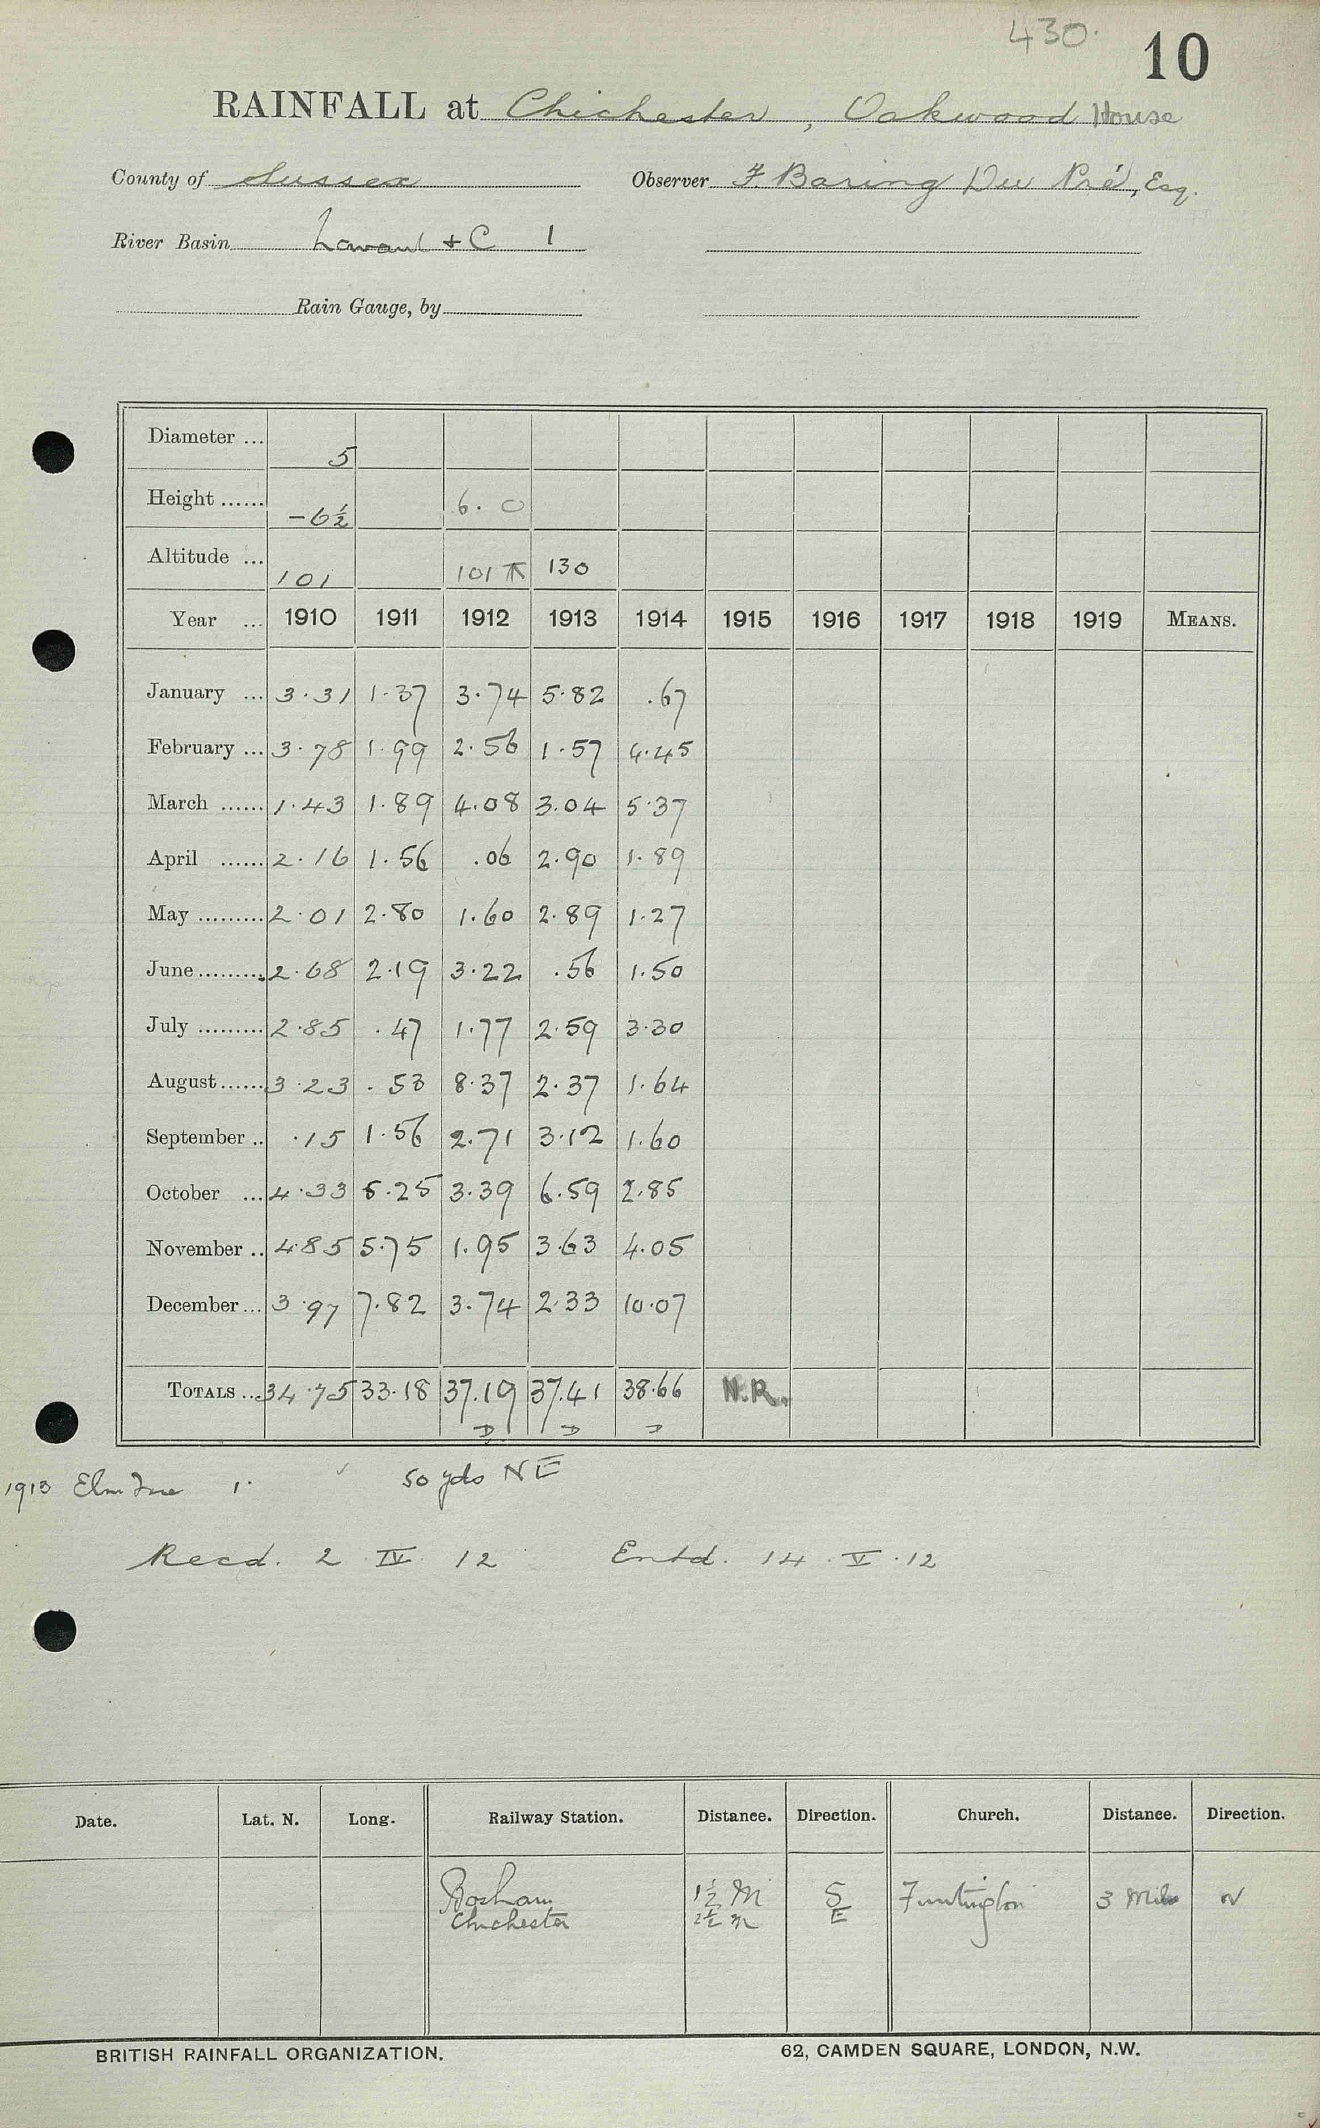 430.
10
RAINFALL at Chichester, Oakwood House
County of Sussex Observer F. Baring Du Pré, Esq.
River Basin Lavant + C 1
Rain Gauge, by
Diameter ... 5
Height ...... -6½ 6. 0
Altitude ... 101 101 130
Year ... 1910 1911 1912 1913 1914 1915 1916 1917 1918 1919 MEANS.
January ... 3.31 1.37 3.74 5.82 .67
February ... 3.78 1.99 2.56 1.57 4.45
March ...... 1.43 1.89 4.08 3.04 5.37
April ...... 2.16 1.56 .06 2.90 1.89
May ......... 2.01 2.80 1.60 2.89 1.27
June ......... 2.68 2.19 3.22 .56 1.50
July ......... 2.85 .47 1.77 2.59 3.30
August ...... 3.23 .53 8.37 2.37 1.64
September .. .15 1.56 2.71 3.12 1.60
October ... 4.33 5.25 3.39 6.59 2.85
November .. 4.85 5.75 1.95 3.63 4.05
December ... 3.97 7.82 3.74 2.33 10.07
TOTALS ... 34.75 33.18 37.19 37.41 38.66 N.R.
1913 Elm Tree 1. 50 yds NE
Recd. 2 IV 12 Entd. 14. V. 12
Date. Lat. N. Long. Railway Station. Distance. Direction. Church. Distance. Direction.
Bosham 1½ M S Funtington 3 Miles N
Chichester 2½ m E
BRITISH RAINFALL ORGANIZATION. 62, CAMDEN SQUARE, LONDON, N.W.